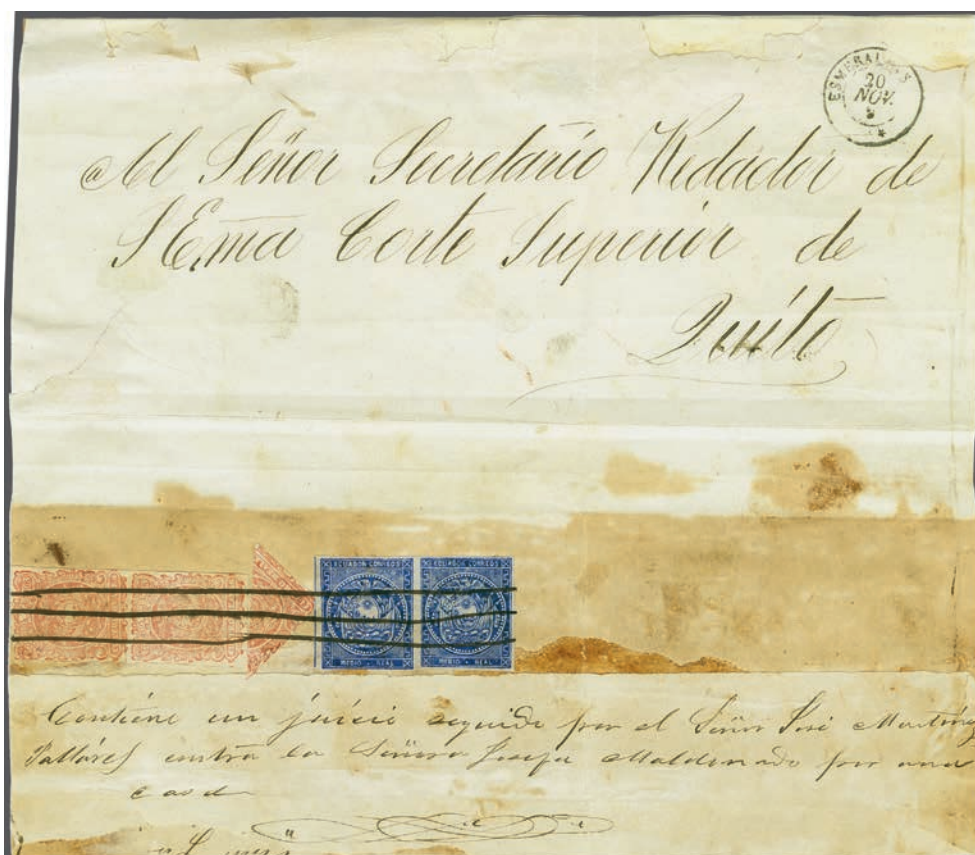 ESMERALDAS
20
NOV.
Al Señor Secretario Redactor de
S Ema Corte Superior de
Quito
ECUADOR CORREOS ECUADOR CORREOS
MEDIO REAL MEDIO REAL
Contiene un juicio seguido por el Señor José Martínez
Palláres contra la Señora Josefa Maldonado por una